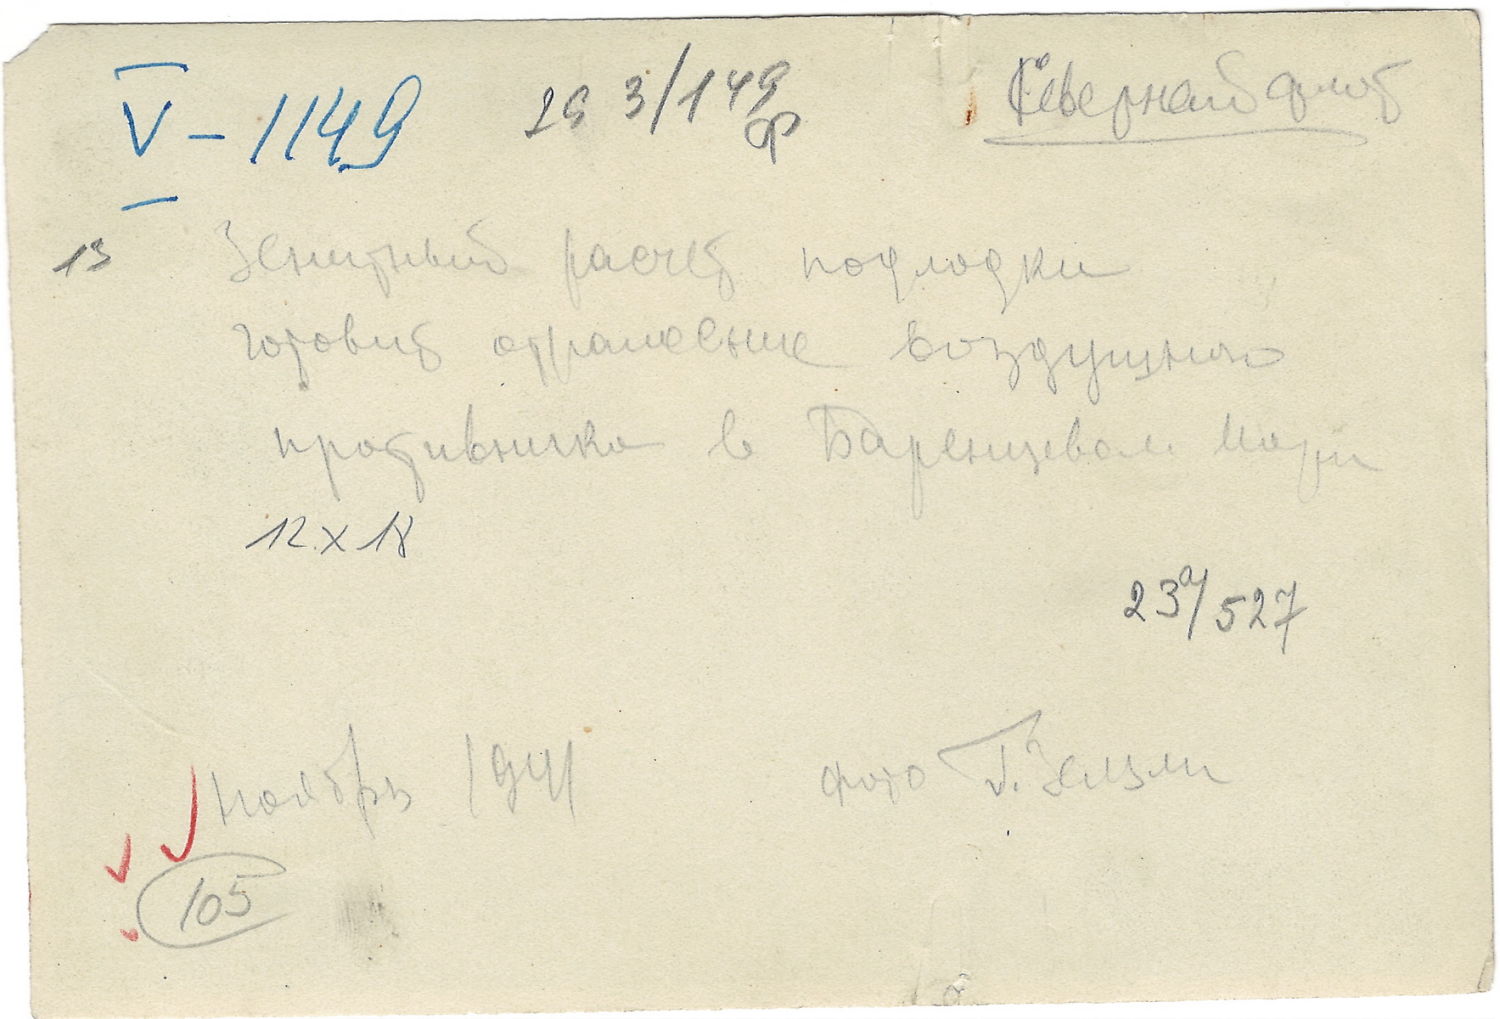 V - 1149
29 3/149
ф
Северный флот
13
Зенитный расчет подлодки
готовит отражение воздушного
противника в Баренцевом море
12 х 18
23а/527
ноябрь 1941
фото Г. Зельмы
105